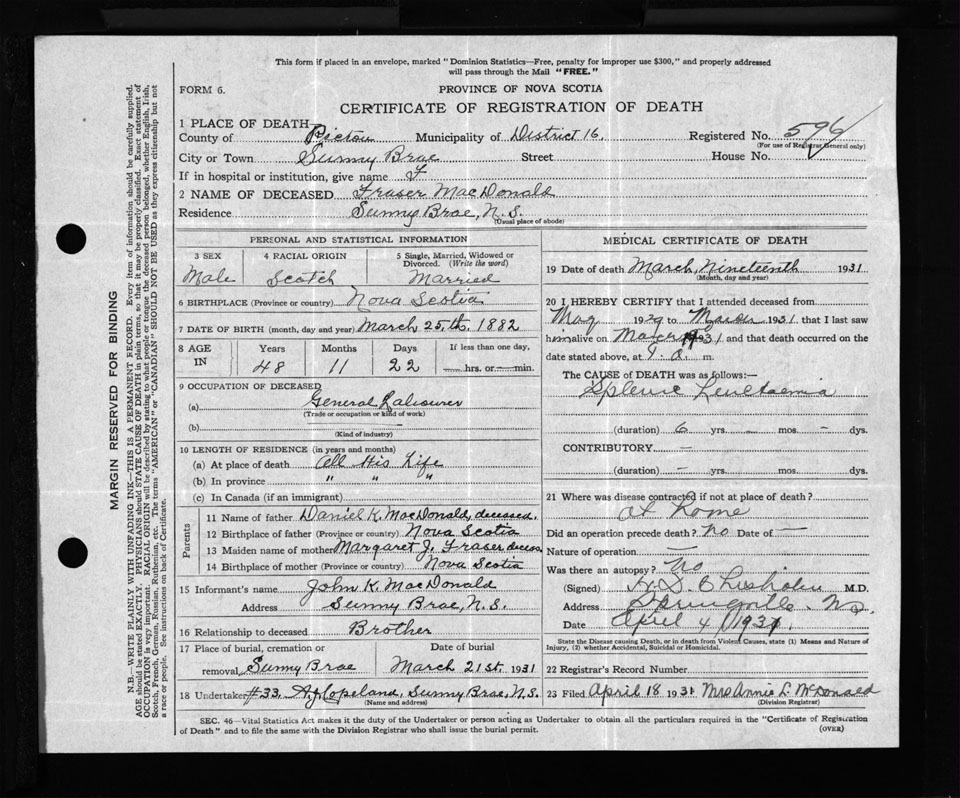 This form if placed in an envelope, marked "Dominion Statistics—Free, penalty for improper use $300," and properly addressed
will pass through the Mail "FREE."
FORM 6.
PROVINCE OF NOVA SCOTIA
CERTIFICATE OF REGISTRATION OF DEATH
1 PLACE OF DEATH
County of Pictou Municipality of District 16. Registered No. 596
(For use of Registrar General only)
City or Town Sunny Brae Street House No.
If in hospital or institution, give name
2 NAME OF DECEASED Fraser MacDonald
Residence Sunny Brae, N.S.
(Usual place of abode)
PERSONAL AND STATISTICAL INFORMATION
3 SEX 4 RACIAL ORIGIN 5 Single, Married, Widowed or Divorced. (Write the word)
Male Scotch Married
6 BIRTHPLACE (Province or country) Nova Scotia
7 DATE OF BIRTH (month, day and year) March 25th, 1882
8 AGE IN Years Months Days If less than one day,
48 11 22 — hrs. or — min.
9 OCCUPATION OF DECEASED
(a) General Labourer
(Trade or occupation or kind of work)
(b) —
(Kind of industry)
10 LENGTH OF RESIDENCE (in years and months)
(a) At place of death All His Life
(b) In province " " "
(c) In Canada (if an immigrant)
Parents
11 Name of father Daniel K. MacDonald, deceased.
12 Birthplace of father (Province or country) Nova Scotia
13 Maiden name of mother Margaret J. Fraser deceas.
14 Birthplace of mother (Province or country) Nova Scotia
15 Informant's name John K. MacDonald
Address Sunny Brae, N.S.
16 Relationship to deceased Brother
17 Place of burial, cremation or Date of burial
removal Sunny Brae March 21st. 1931
18 Undertaker #33. A.J. Copeland, Sunny Brae, N.S.
(Name and address)
MEDICAL CERTIFICATE OF DEATH
19 Date of death March, Nineteenth 1931
(Month, day and year)
20 I HEREBY CERTIFY that I attended deceased from
May 1929 to March 1931 that I last saw
him alive on March 1931 and that death occurred on the
date stated above, at 1 a. m.
The CAUSE of DEATH was as follows:—
Splenic Leukaemia
(duration) 6 yrs. — mos. — dys.
CONTRIBUTORY —
(duration) — yrs. mos. dys.
21 Where was disease contracted if not at place of death?
at home
Did an operation precede death? no Date of —
Nature of operation —
Was there an autopsy? no
(Signed) Chisholm M.D.
Address Springville N.S.
Date April 4 1931
State the Disease causing Death, or in death from Violent Causes, state (1) Means and Nature of
Injury, (2) whether Accidental, Suicidal or Homicidal.
22 Registrar's Record Number
23 Filed April 18 1931 Mrs Annie L. McDonald
(Division Registrar)
SEC. 46—Vital Statistics Act makes it the duty of the Undertaker or person acting as Undertaker to obtain all the particulars required in the "Certificate of Registration
of Death" and to file the same with the Division Registrar who shall issue the burial permit.
(OVER)
MARGIN RESERVED FOR BINDING
N.B.—WRITE PLAINLY WITH UNFADING INK—THIS IS A PERMANENT RECORD. Every item of information should be carefully supplied.
AGE should be stated EXACTLY. PHYSICIANS should STATE CAUSE OF DEATH in plain terms, so that it may be properly classified. Exact statement of
OCCUPATION is very important. RACIAL ORIGIN will be described by stating to what people or tongue the deceased person belonged, whether English, Irish,
Scotch, French, German, Russian, Ruthenian, etc. The terms "AMERICAN" or "CANADIAN" SHOULD NOT BE USED as they express citizenship but not
a race or people. See instructions on back of Certificate.